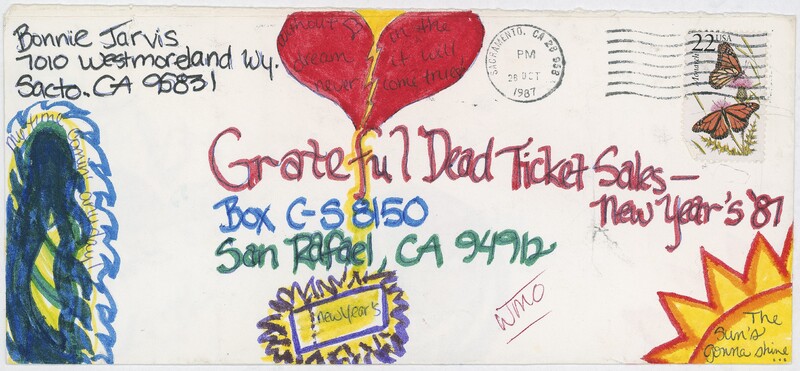 Bonnie Jarvis
7010 Westmoreland Wy.
Sacto. CA 95831
without
in the
dream
it will
never
come true
SACRAMENTO, CA 958
PM
28 OCT
1987
22 USA
Monarch
Grateful Dead Ticket Sales—
New Year's '87
Box C-S 8150
San Rafael, CA 94912
new year's
WMO
The
Sun's
gonna shine ...